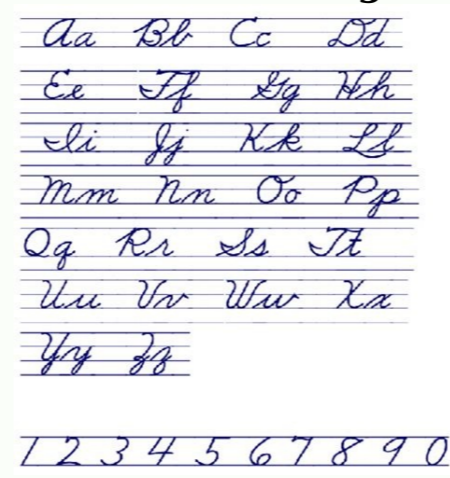 Aa Bb Cc Dd
Ee Ff Gg Hh
Ii Jj Kk Ll
Mm Nn Oo Pp
Qq Rr Ss Tt
Uu Vv Ww Xx
Yy Zz
1 2 3 4 5 6 7 8 9 0